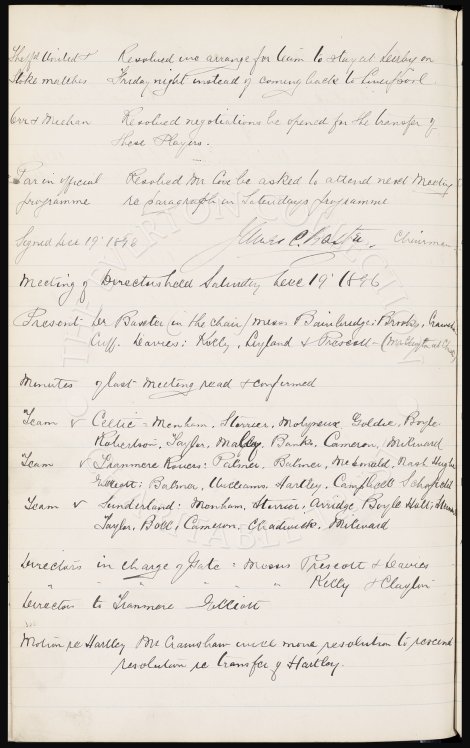 Sheffd United &	Resolved we arrange for team to stay at Derby on
Stoke matches	Friday night instead of coming back to Liverpool
Orr & Meehan	Resolved negotiations be opened for the transfer of
these Players.
Par in official	Resolved Mr Cox be asked to attend next Meeting
programme	re paragraph in Saturdays programme
Signed Dec 19th 1896	James C. Baxter. Chairman
Meeting of Directors held Saturday Dece 19th 1896
Present Dr Baxter in the chair / Messrs Bainbridge: Brooks, Crawshaw
Cuff. Davies: Kelly, Leyland & Prescott -
Minutes of last Meeting read & confirmed
Team v Celtic = Menham, Storrier, Molyneux, Goldie, Boyle
Robertson, Taylor, Banks, Cameron, Milward
Team v Tranmere Rovers: Palmer, Balmer, McDonald, Nash Hughes
Elliott: Balmer, Williams, Hartley, Campbell Schofield
Team v Sunderland: Menham, Storrier, Arridge, Boyle Holt:
Taylor, Bell, Cameron, Chadwick, Milward
Directors in charge of Gate: Messrs Prescott & Davies
" " " " " Kelly & Clayton
Director to Tranmere Elliott
Motion re Hartley Mr Crawshaw will move resolution to rescind
resolution re transfer of Hartley.